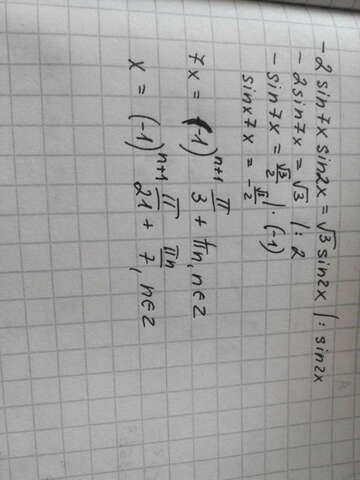 - 2 sin7x sin2x = √3 sin2x |: sin2x
- 2 sin7x = √3 |: 2
- sin7x = √3/2 | · (-1)
sinx7x = - √3/2
7x = (-1)^(n+1) π/3 + πn, n∈z
x = (-1)^(n+1) π/21 + πn/7, n∈z